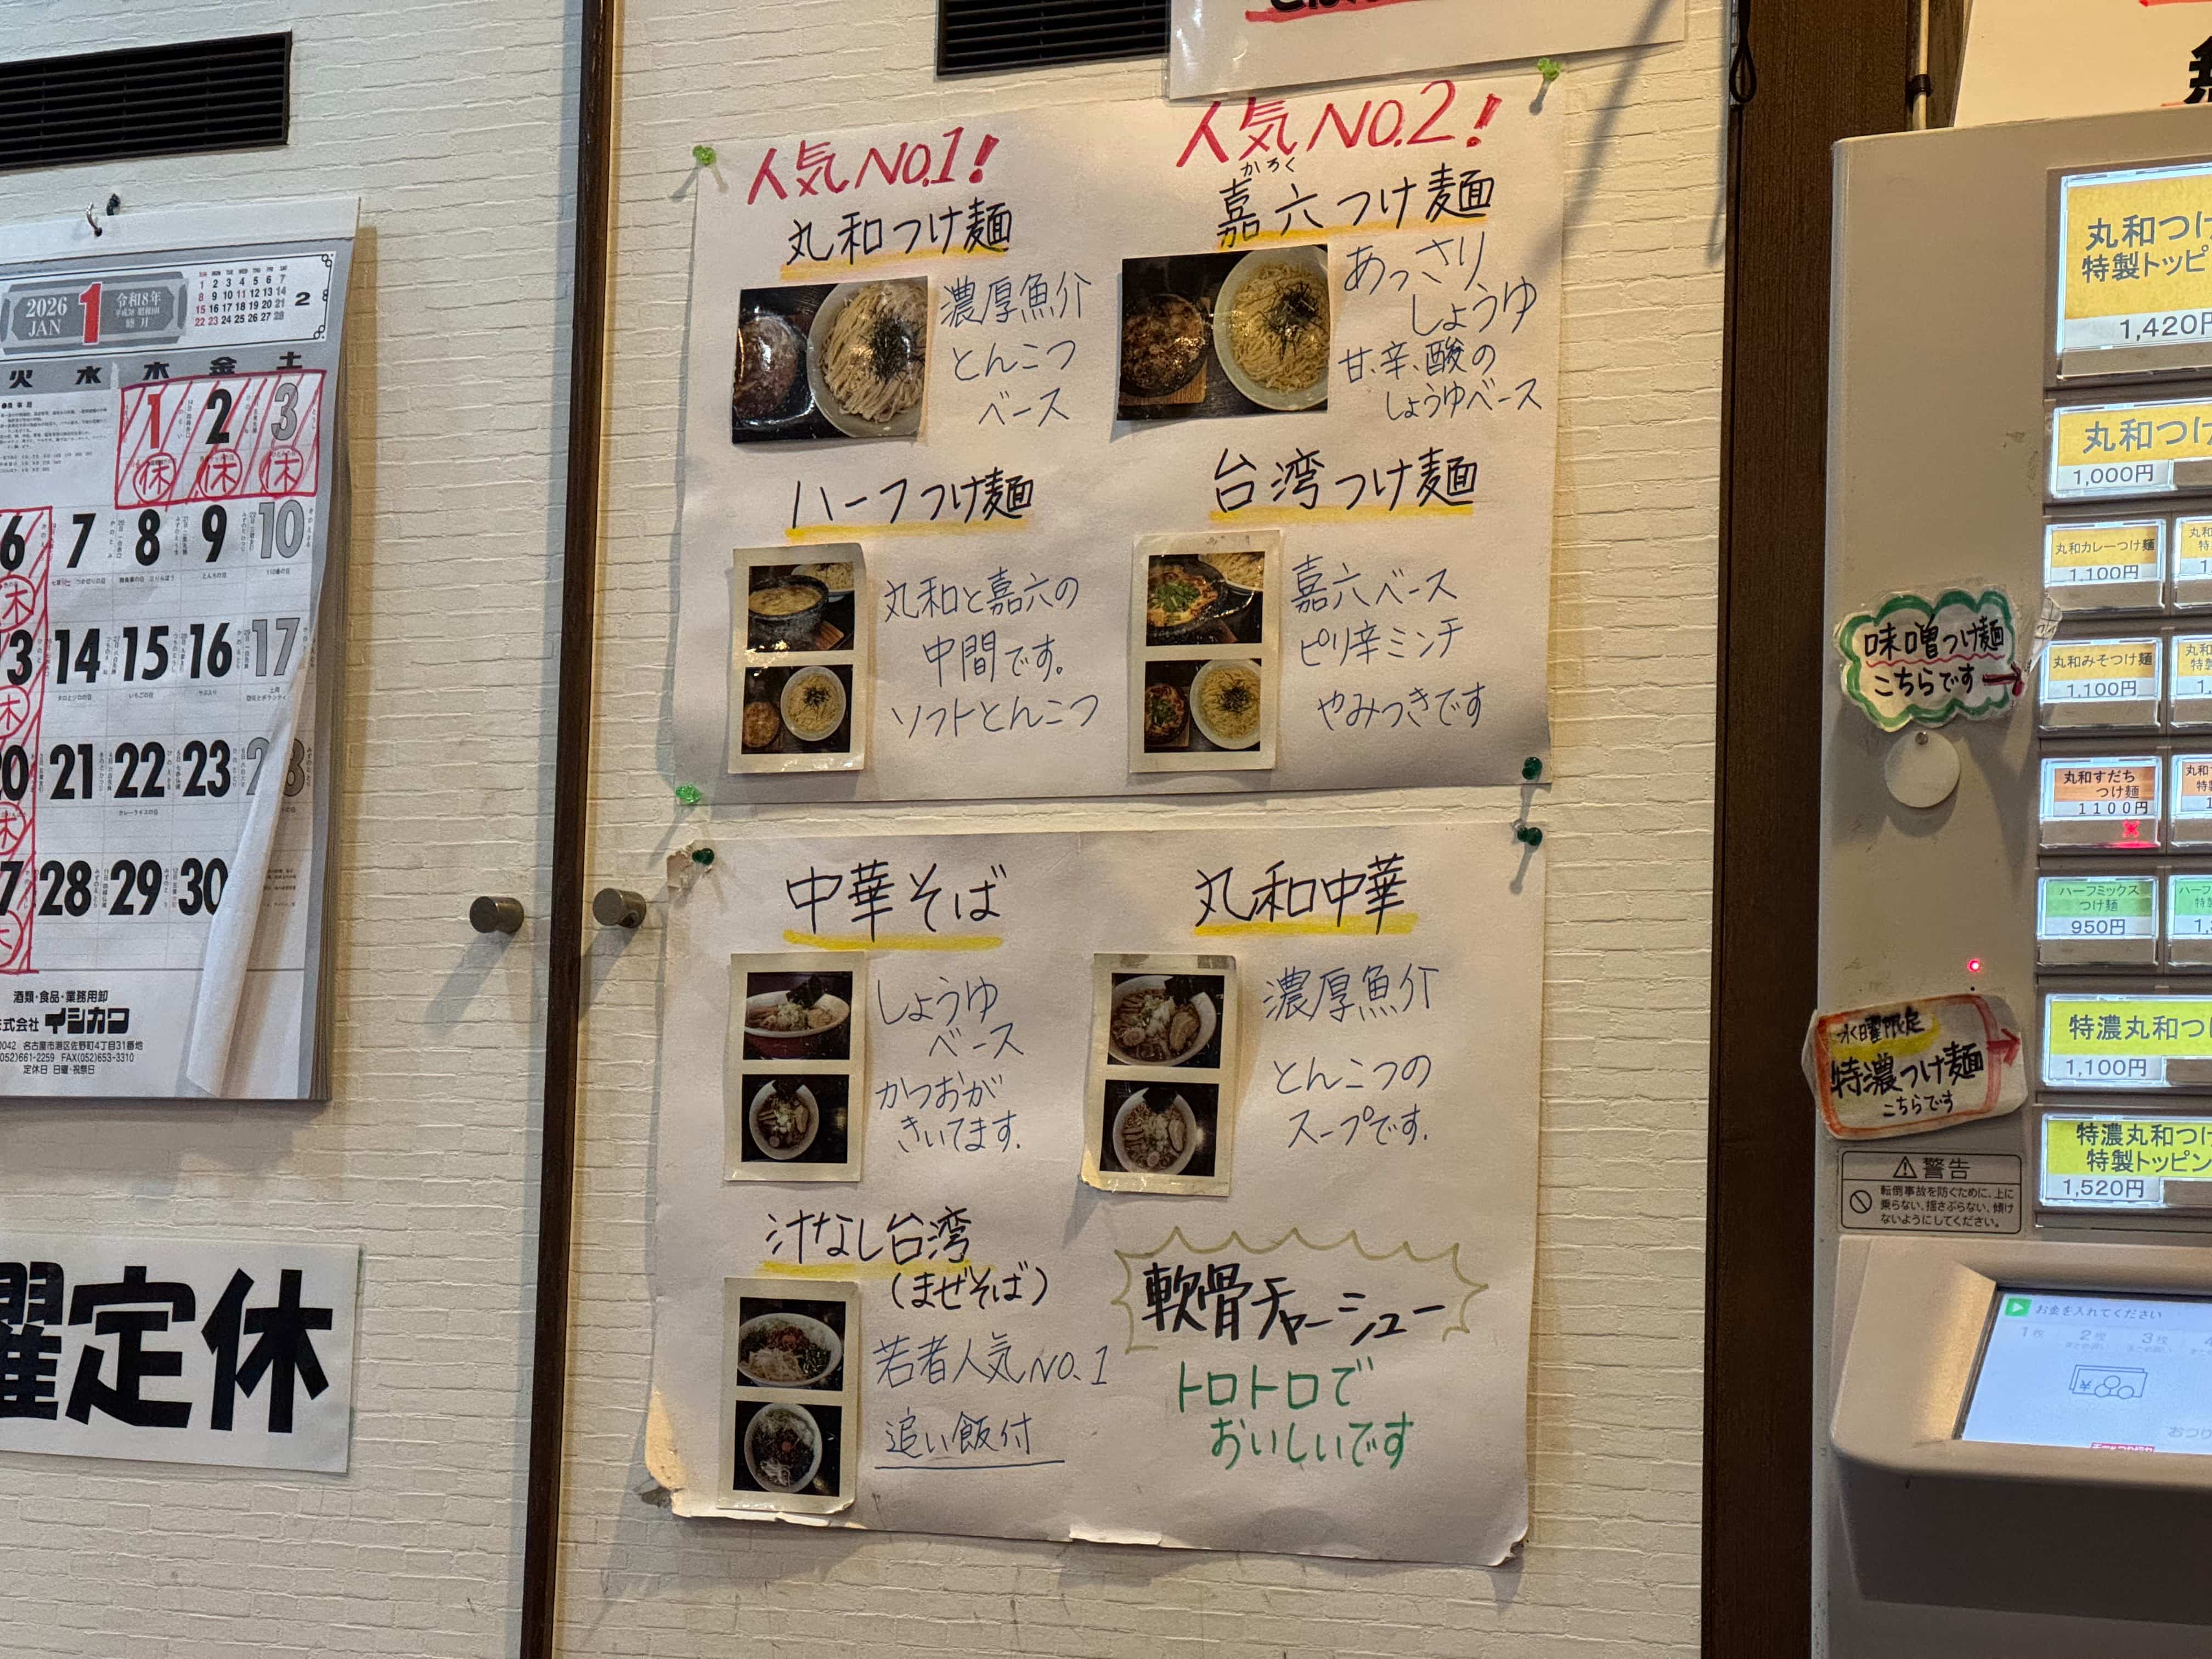 人気NO.1!
丸和つけ麺
濃厚魚介
とんこつ
ベース
人気NO.2!
かろく
嘉六つけ麺
あっさり
しょうゆ
甘、辛、酸の
しょうゆベース
ハーフつけ麺
丸和と嘉六の
中間です。
ソフトとんこつ
台湾つけ麺
嘉六ベース
ピリ辛ミンチ
やみつきです
中華そば
しょうゆ
ベース
かつおが
きいてます.
丸和中華
濃厚魚介
とんこつの
スープです.
汁なし台湾
(まぜそば)
若者人気NO.1
追い飯付
軟骨チャーシュー
トロトロで
おいしいです
2026
JAN
1
令和8年
睦月
SUN MON TUE WED THU FRI SAT
1 2 3 4 5 6 7
8 9 10 11 12 13 14
15 16 17 18 19 20 21
22 23 24 25 26 27 28
2
火 水 木 金 土
1 2 3
休 休 休
6 7 8 9 10
休
14 15 16 17
休
21 22 23
休
28 29 30
酒類・食品・業務用卸
イシカワ
名古屋市港区佐野町4丁目31番地
(052)661-2259 FAX(052)653-3310
定休日 日曜・祝祭日
曜定休
丸和つけ
特製トッピ
1,420円
丸和つけ
1,000円
丸和カレーつけ麺
1,100円
味噌つけ麺
こちらです
丸和みそつけ麺
1,100円
丸和すだち
つけ麺
1100円
ハーフミックス
つけ麺
950円
水曜限定
特濃つけ麺
こちらです
特濃丸和つ
1,100円
特濃丸和つけ
特製トッピン
1,520円
警告
転倒事故を防ぐために、上に
乗らない、揺さぶらない、傾け
ないようにしてください。
お金を入れてください
1枚 2枚 3枚